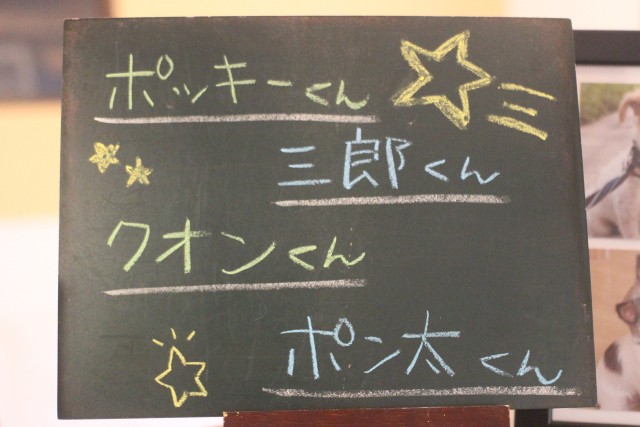 ポッキーくん
三郎くん
クオンくん
ポン太くん